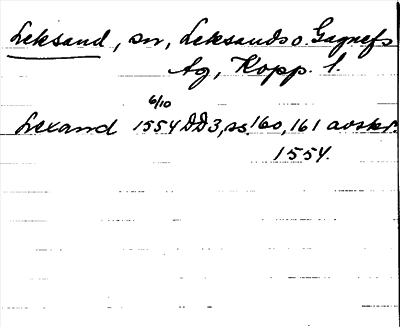 Leksand, sn, Leksands o. Gagnefs
tg, Kopp. l.
6/10
Lexand 1554 DD3, ss. 160, 161 avskr.
1554.